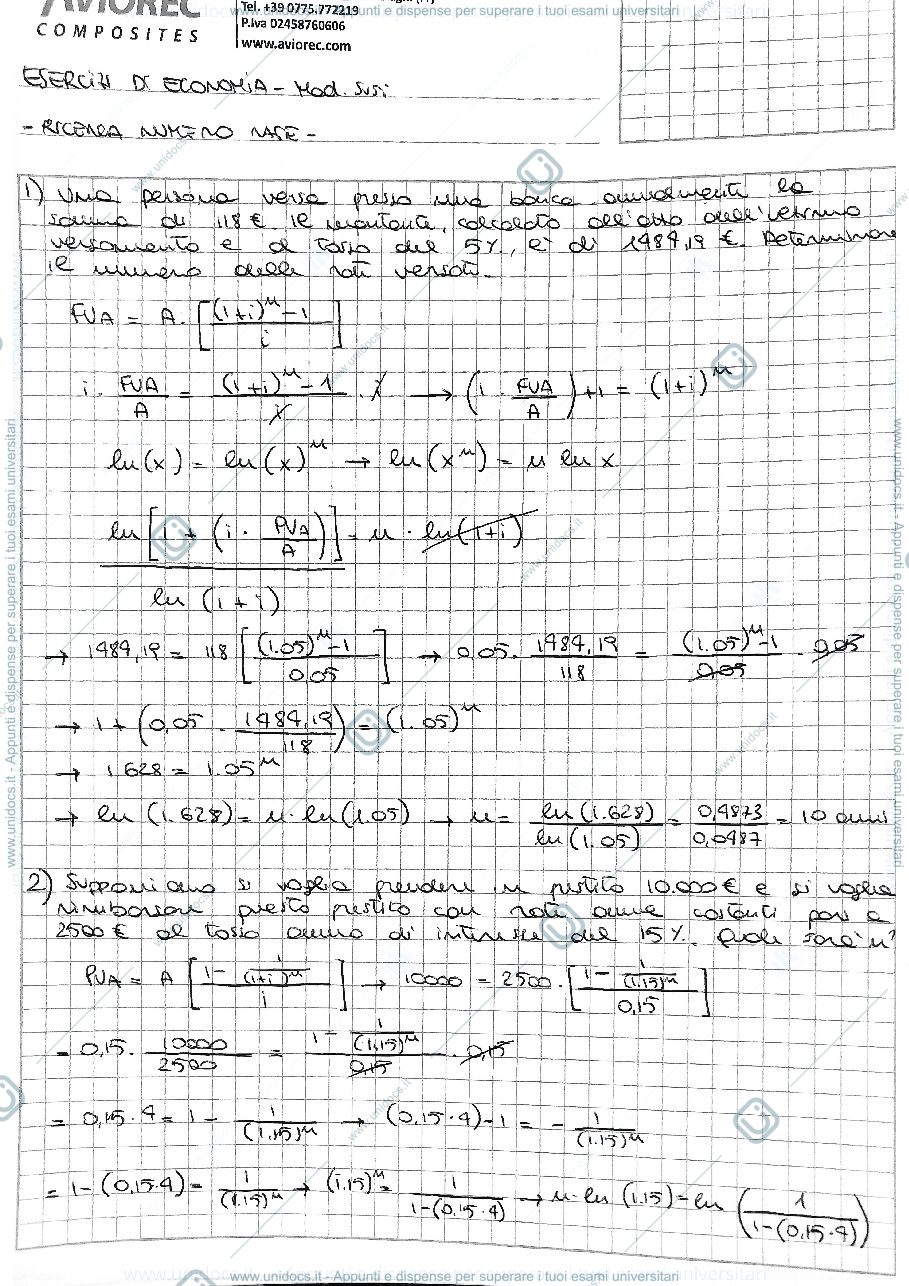 AVIOREC
COMPOSITES
Tel. +39 0775.772219
P.iva 02458760606
www.aviorec.com
www.unidocs.it - Appunti e dispense per superare i tuoi esami universitari
ESERCIZI DI ECONOMIA - Mod. Susi
- RICERCA NUMERO RATE -
1) Una persona versa presso una banca annualmente la
somma di 118 € il montante, calcolato all'atto dell'ultimo
versamento e al tasso del 5%, è di 1484,19 €. Determinare
il numero delle rate versate.
FVA = A · [((1+i)^n - 1) / i]
i · FVA/A = ((1+i)^n - 1)/i · i → (i · FVA/A) + 1 = (1+i)^n
ln(x) = ln(x)^n → ln(x^n) = n ln x
ln[1 + (i · FVA/A)] = n · ln(1+i)
ln (1+i)
→ 1484,19 = 118 [((1.05)^n - 1) / 0,05] → 0,05 · 1484,19/118 = ((1.05)^n - 1)/0,05 · 0,05
→ 1 + (0,05 · 1484,19/118) = (1.05)^n
→ 1.628 = 1.05^n
→ ln (1.628) = n · ln(1.05) → n = ln(1.628)/ln(1.05) = 0,4873/0,0487 = 10 anni
2) Supponiamo si voglia prendere in prestito 10.000 € e si voglia
rimborsare questo prestito con rate annue costanti pari a
2500 € al tasso annuo di interesse del 15%. Quale sarà n?
PVA = A [(1 - 1/(1+i)^n) / i] → 10000 = 2500 · [(1 - 1/(1.15)^n) / 0,15]
= 0,15 · 10000/2500 = (1 - 1/(1.15)^n)/0,15 · 0,15
= 0,15 · 4 = 1 - 1/(1.15)^n → (0,15 · 4) - 1 = - 1/(1.15)^n
= 1 - (0,15·4) = 1/(1.15)^n → (1.15)^n = 1/(1-(0,15·4)) → n · ln (1.15) = ln (1/(1-(0,15·4)))
www.unidocs.it - Appunti e dispense per superare i tuoi esami universitari